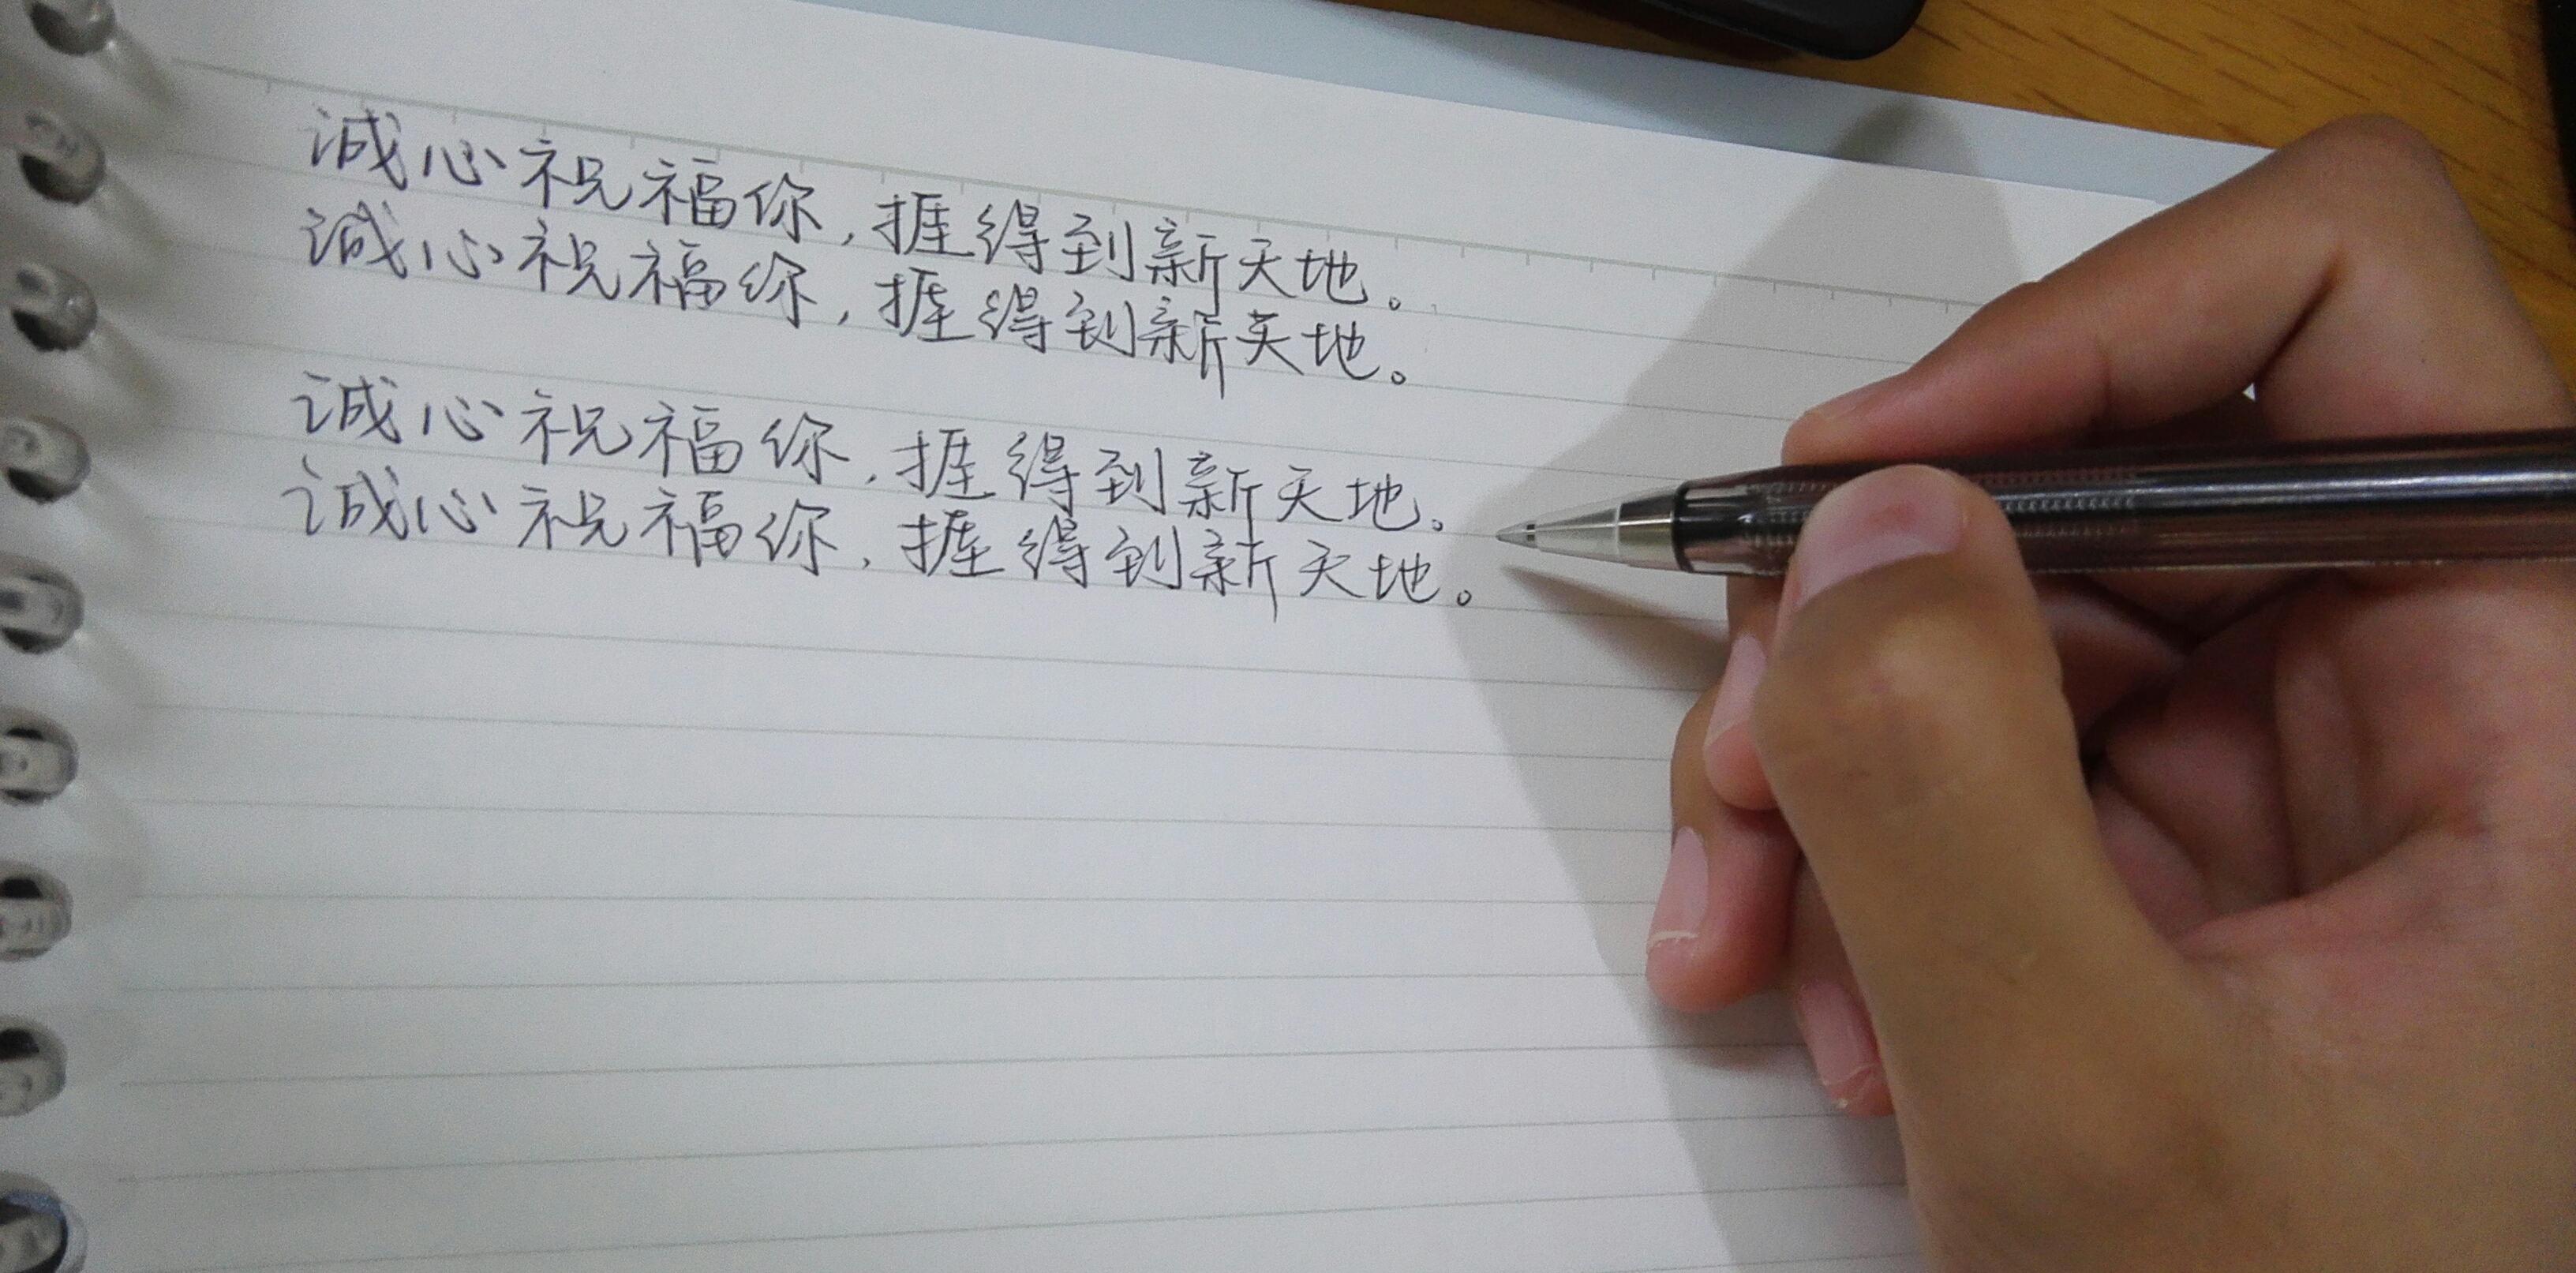 诚心祝福你,捱得到新天地。
诚心祝福你,捱得到新天地。
诚心祝福你,捱得到新天地。
诚心祝福你,捱得到新天地。